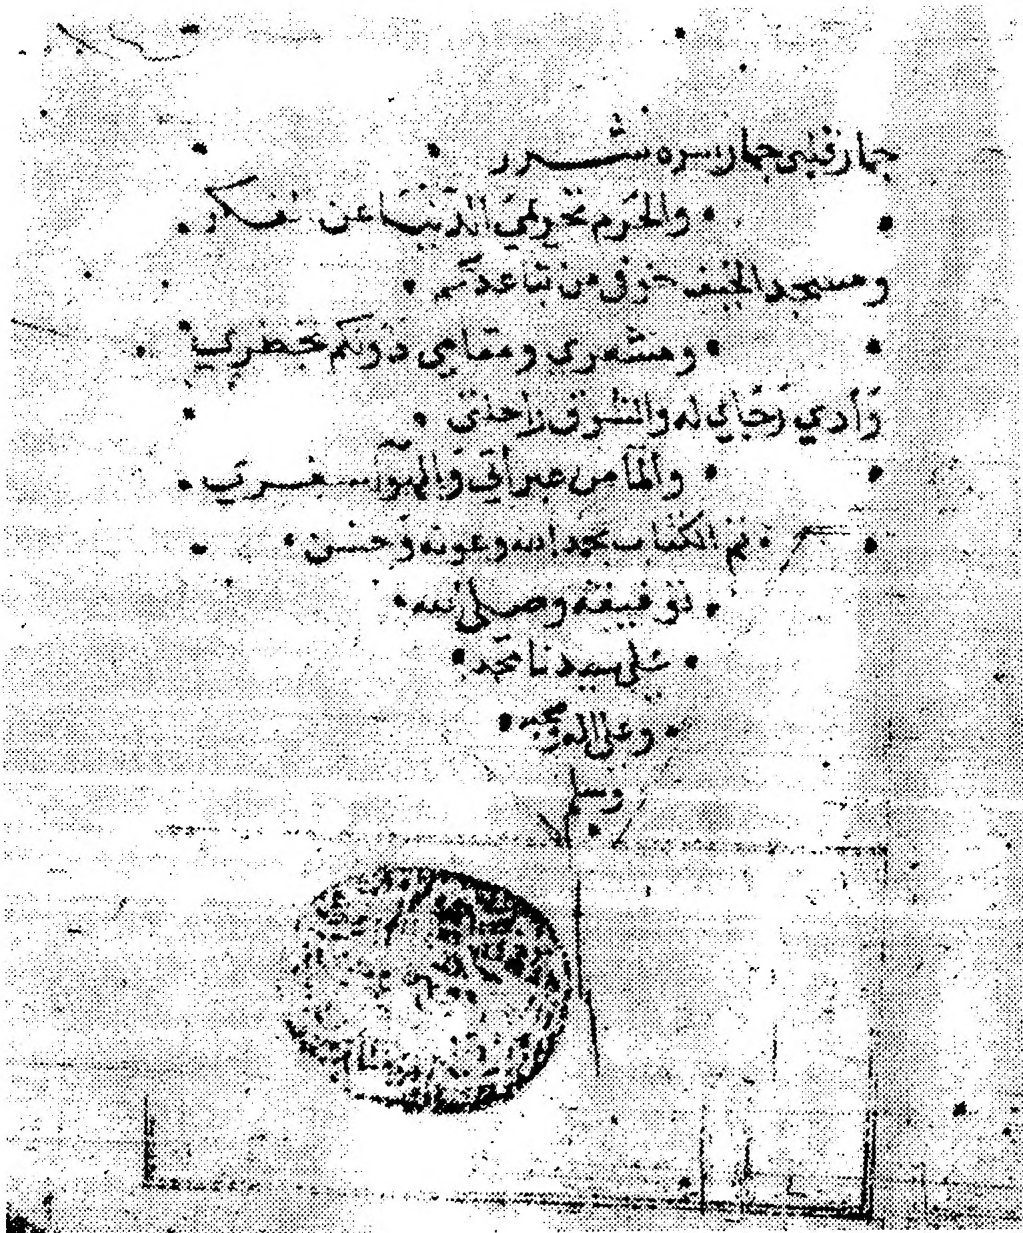 جمار قلبي جمار سره شرر
والحرم تحريمي الدنيا عن
ومسجد الخيف خوفي من تباعدكم
ومشعري ومقامي دونكم
زادي رجاي له والشوق راحلتي
والما من عبراتي والهوى سفري
تم الكتاب بحمد الله وعونه وحسن
توفيقه وصلى الله
على سيدنا محمد
وعلى اله وصحبه
وسلم